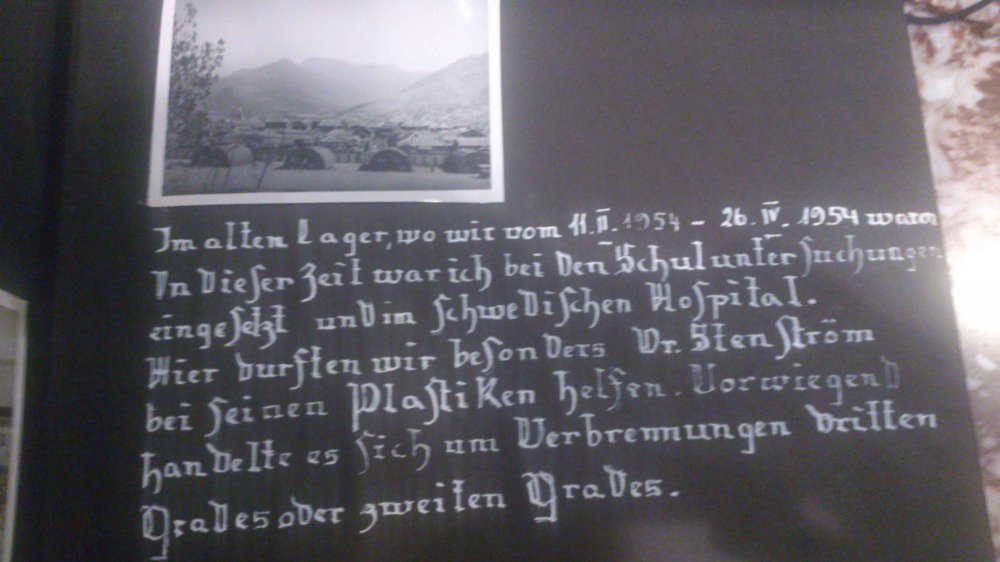 Im alten Lager, wo wir vom 11.II.1954 – 26.IV.1954 waren
In dieser Zeit war ich bei den Schuluntersuchungen
eingesetzt und im schwedischen Hospital.
Hier durften wir besonders Dr. Stenström
bei seinen Plastiken helfen. Vorwiegend
handelte es sich um Verbrennungen dritten
Grades oder zweiten Grades.